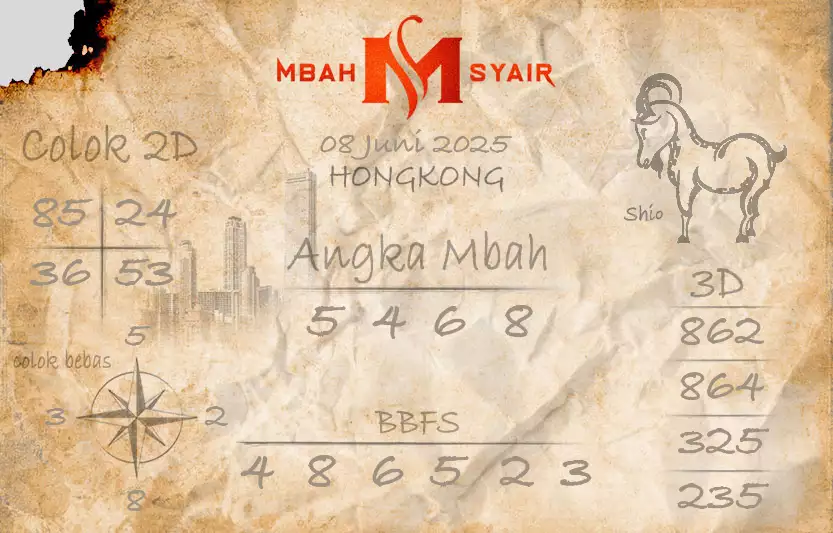 MBAH M SYAIR
08 Juni 2025
HONGKONG
Colok 2D
85 24
36 53
Shio
Angka Mbah
5 4 6 8
3D
862
864
325
235
colok bebas
5
3 2
8
BBFS
4 8 6 5 2 3